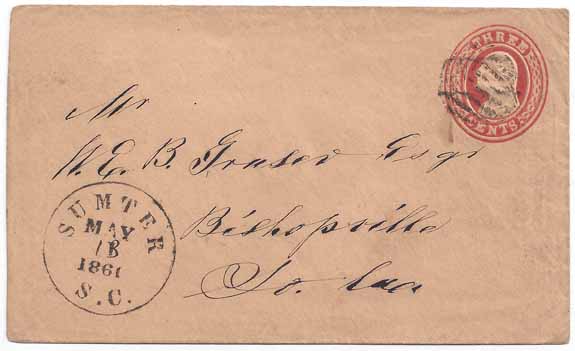 THREE
CENTS.
Mr
W. E. B. Fraser Esqr
Bishopville
So. Car
SUMTER
MAY
1861
S.C.